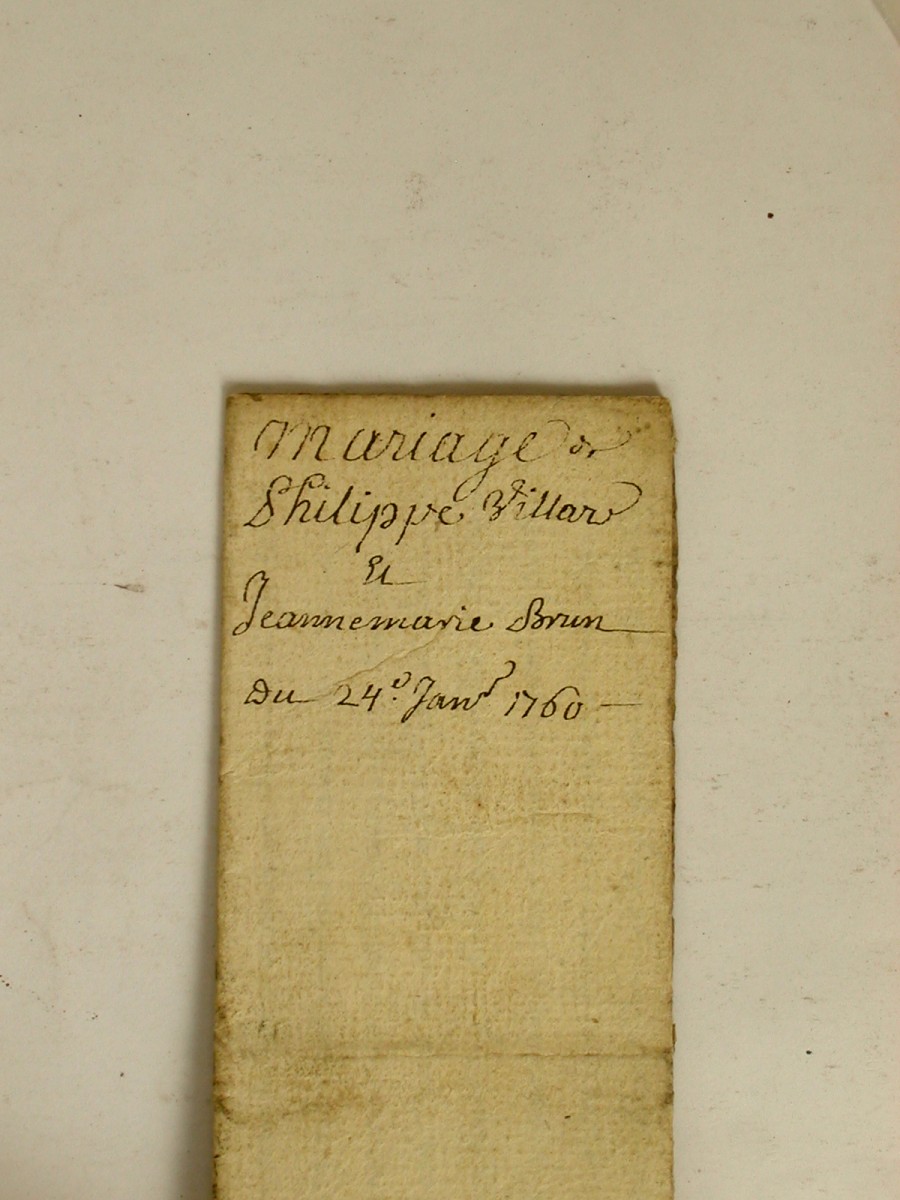 Mariage de
Philippe Villar
Et
Jeannemarie Brun
Du 24e. Janvr 1760